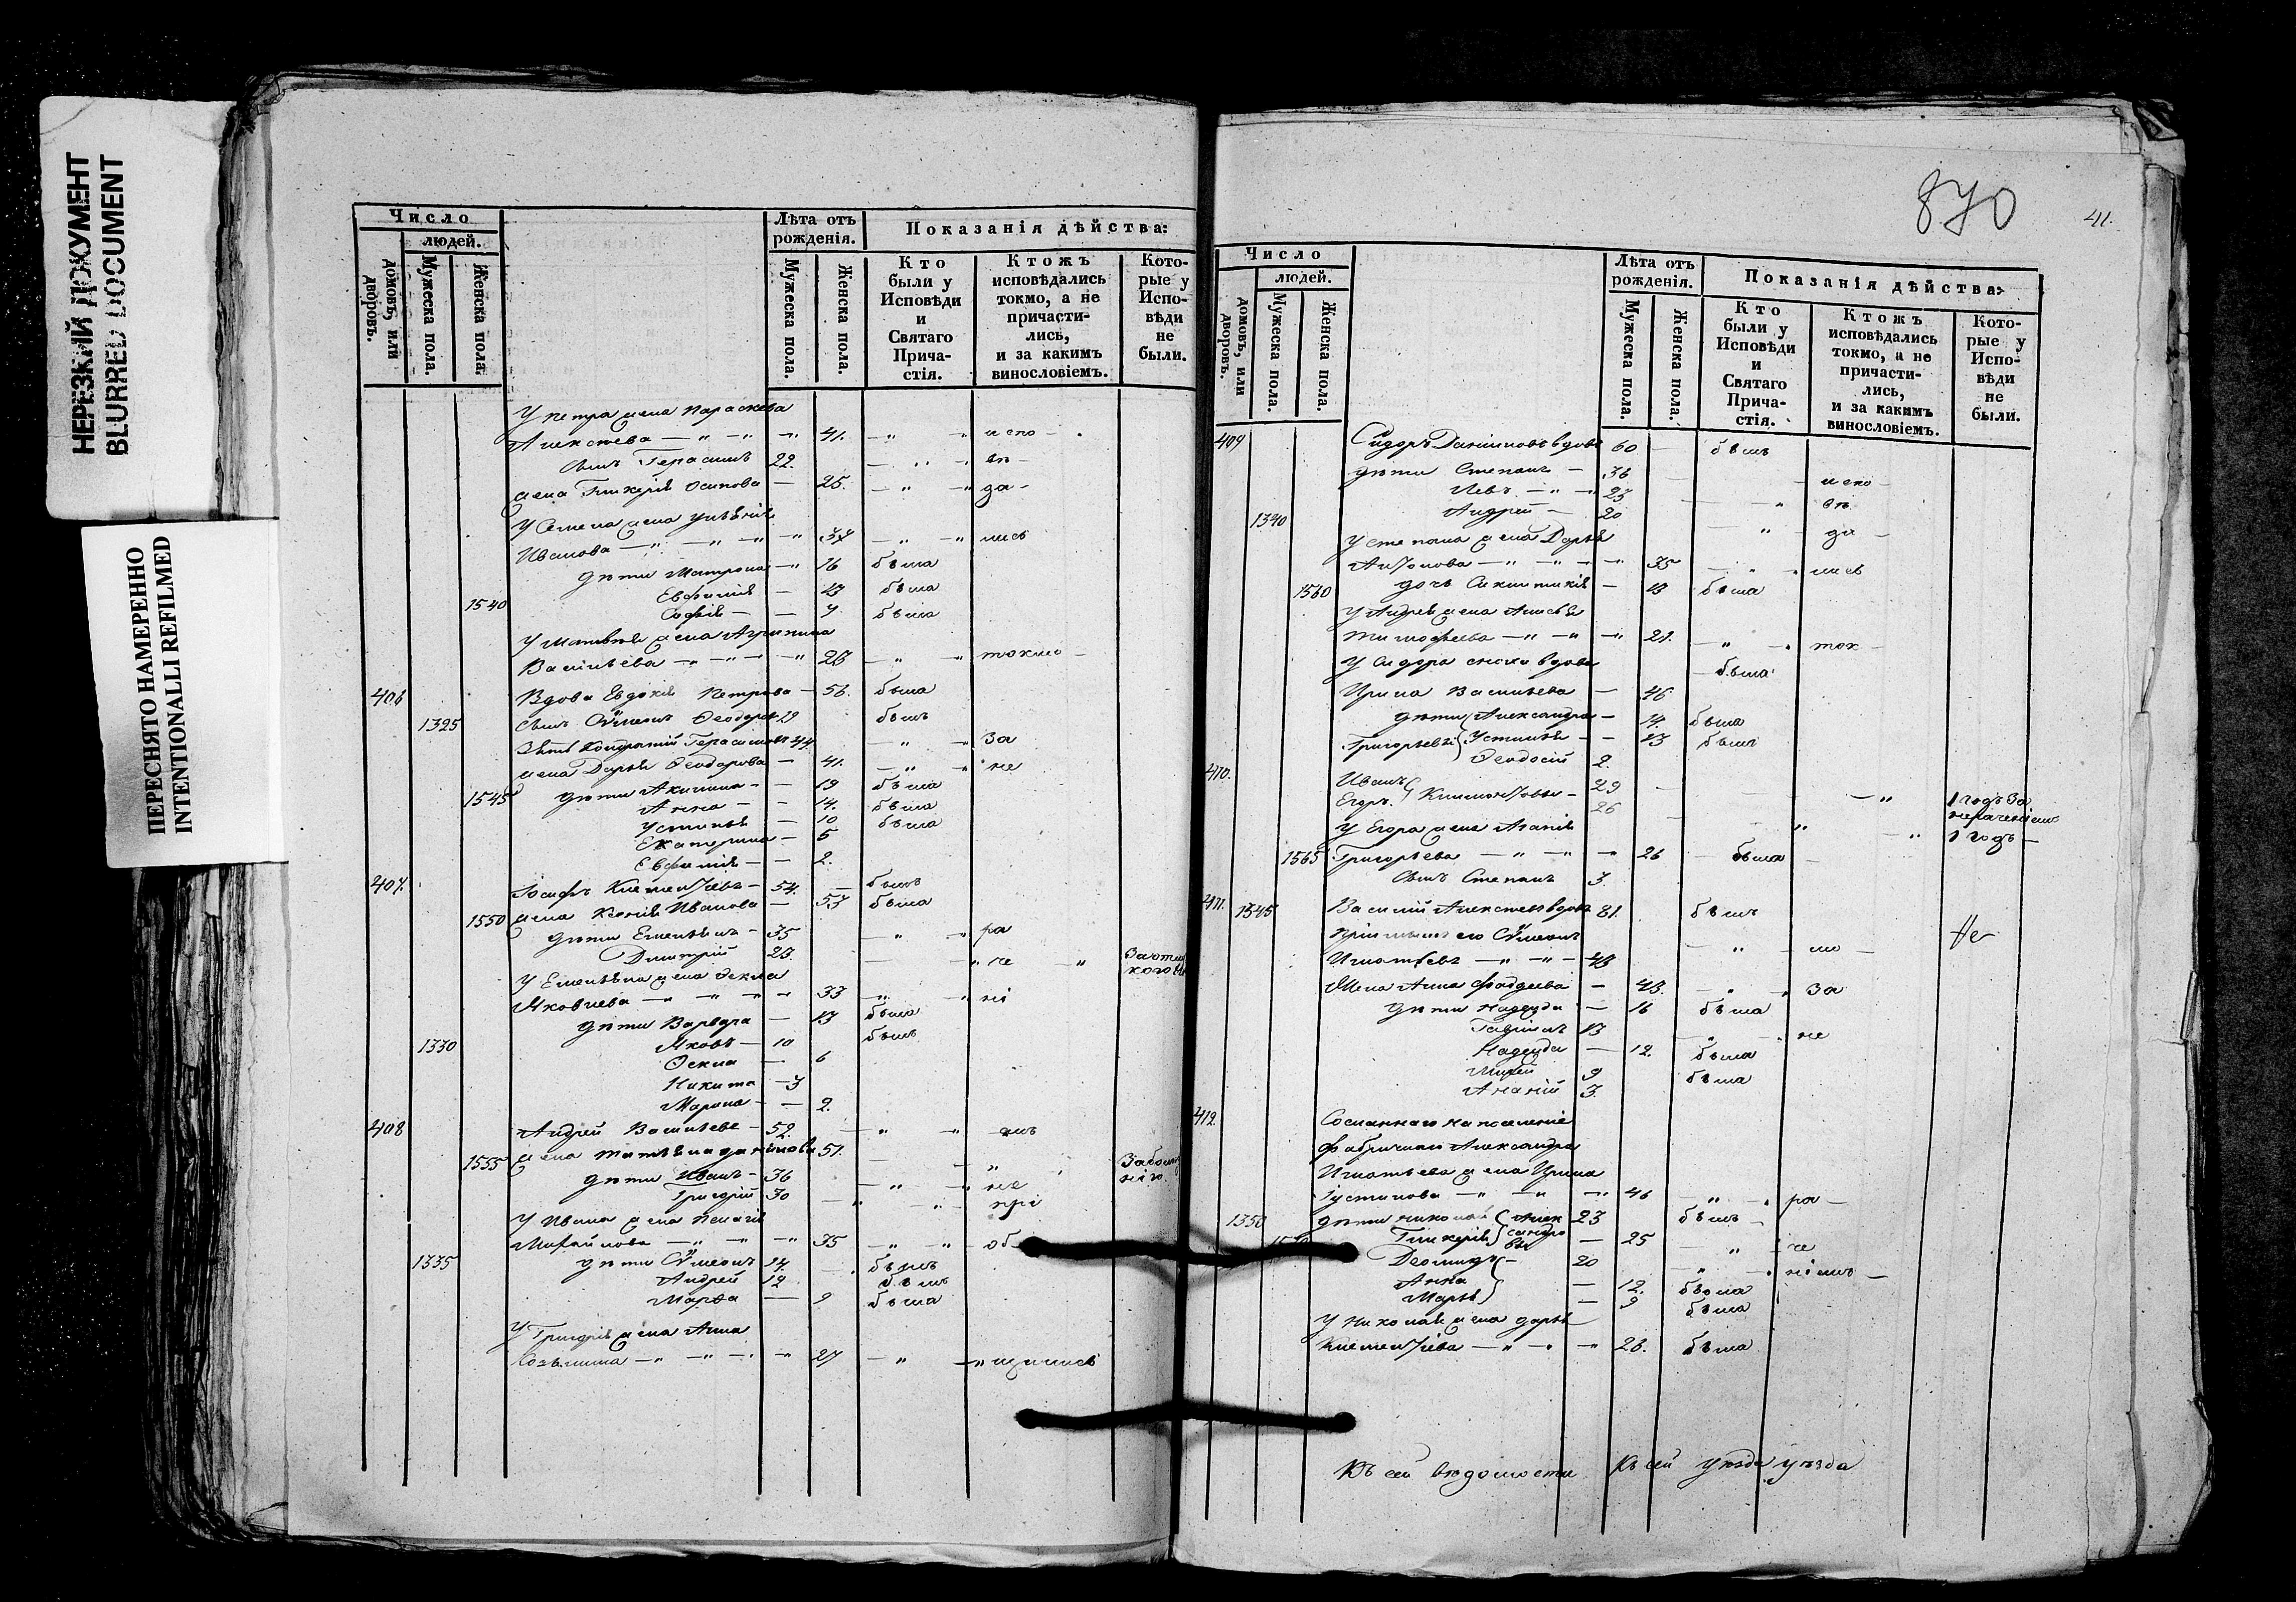 НЕРЕЗКИЙ ДОКУМЕНТ
BLURRED DOCUMENT
ПЕРЕСНЯТО НАМЕРЕННО
INTENTIONALLI REFILMED
Число
людей.
домовъ, или дворовъ.
Мужеска пола.
Женска пола.
Лѣта отъ рожденія.
Мужеска пола.
Женска пола.
Показанія дѣйства:
Кто были у Исповѣди и Святаго Прича-стія.
Ктожъ исповѣдались токмо, а не причасти-лись, и за какимъ винословіемъ.
Кото-рые у Испо-вѣди не были.
У Петра жена Параскева
Алексѣева — 41. испо-
сынъ Герасимъ 22. вѣ-
жена Гликерія Осипова — 25. да-
У Семена жена
Иванова — 37 лись
дѣти Матрона — 16 была
Евфимія — 13 была
1540 Софія — 9 была
У Матвѣя жена Агрипина
Васильева — 28 токмо
406 Вдова Евдокія Петрова — 56. была
1325 сынъ Сѵмеонъ Ѳеодоровъ 29 былъ
Зять Кондратій Герасимовъ 44 за
жена Дарья Ѳеодорова — 41. не
1545 дѣти Акилина — 19 была
Анна — 14. была
Устинья — 10 была
Екатерина — 5
Евфимія — 2.
407. Іосифъ Климентьевъ — 54. былъ
1550 жена Ксенія Иванова — 53 была
дѣти Емельянъ — 35 ра
Дмитрій 23. че
У Емельяна жена Ѳекла
Яковлева — 33 ні
дѣти Варвара — 13 была
1330 Яковъ — 10 былъ
Ѳекла — 6
Никита — 3
Марина — 2.
408 Андрей Васильевъ — 52. емъ
1555 жена Татьяна Данилова 51.
дѣти Иванъ — 36 не
Григорій 30 прі
У Ивана жена Пелагія
Михайлова — 35 об
1335 дѣти Сѵмеонъ 14. былъ
Андрей 12 былъ
Марѳа — 9 была
У Григорія жена Анна
Козьмина — 27 щались
870
411.
Число
людей.
домовъ, или дворовъ.
Мужеска пола.
Женска пола.
Лѣта отъ рожденія.
Мужеска пола.
Женска пола.
Показанія дѣйства:
Кто были у Исповѣди и Святаго Прича-стія.
Ктожъ исповѣдались токмо, а не причасти-лись, и за какимъ винословіемъ.
Кото-рые у Испо-вѣди не были.
409 Сидоръ Даниловъ вдовъ 60 былъ
дѣти Степанъ — 36 испо-
Левъ — 23 вѣ
1340 Андрей — 20 да
У Степана жена Дарья
Антонова — 35 лись
1560 дочь — 13 была
У Андрея жена
Тимофеева — 21. ток
У Сидора сноха вдова
Ирина Васильева — 46 была
дѣти Александра — 14. была
Григорьевы Устинья — 13
Ѳеодосій 2.
410. Иванъ 29 1 годъ за
Егоръ Климентьевы — 26 нераченіемъ
У Егора жена Агапія 1 годъ
1565 Григорьева — 26 была
сынъ Степанъ 3.
411. 1345 Василій Алексѣевъ вдовъ 81. былъ
пріемышъ его Сѵмеонъ Не
Игнатьевъ — 43
Жена Анна Фаддеева — 43. за
дѣти Надежда — 16 была
Гавріилъ 13 не
Надежда — 12. была
9
Ананій 3.
412. Сосланнаго на поселеніе
фабричнаго Александра
Игнатьева жена Ирина
Іустинова — 46 ра
1350 дѣти Николай Алек 23 былъ
Гликерія сандро вы — 25 че
Леонидъ — 20 ніемъ
Анна — 12. была
Марья — 9 была
У Николая жена Дарья
Климентьева — 26. была
Къ сей вѣдомости Къ сей уѣзда уѣзда